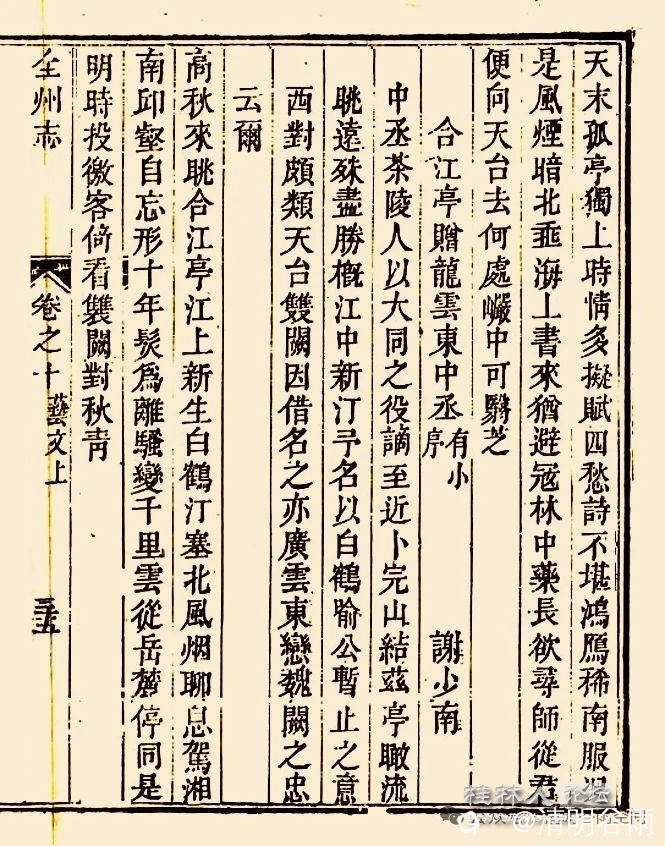 天末孤亭獨上時情多擬賦四愁詩不堪鴻鴈稀南服況
是風煙暗北垂海上書來猶避冦林中藥長欲尋師從君
便向天台去何處巗中可劚芝
合江亭贈龍雲東中丞有小序 謝少南
中丞茶陵人以大同之役謫至近卜完山結茲亭瞰流
眺遠殊盡勝槪江中新汀予名以白鶴喻公暫止之意
西對頗類天台雙闕因借名之亦廣雲東戀魏闕之忠
云爾
高秋來眺合江亭江上新生白鶴汀塞北風烟聊息駕湘
南邱壑自忘形十年髮爲離騷變千里雲從岳麓停同是
明時投徼客倚看雙闕對秋靑
全州志 卷之十 藝文上 三五
桂林人论坛
@清明谷雨